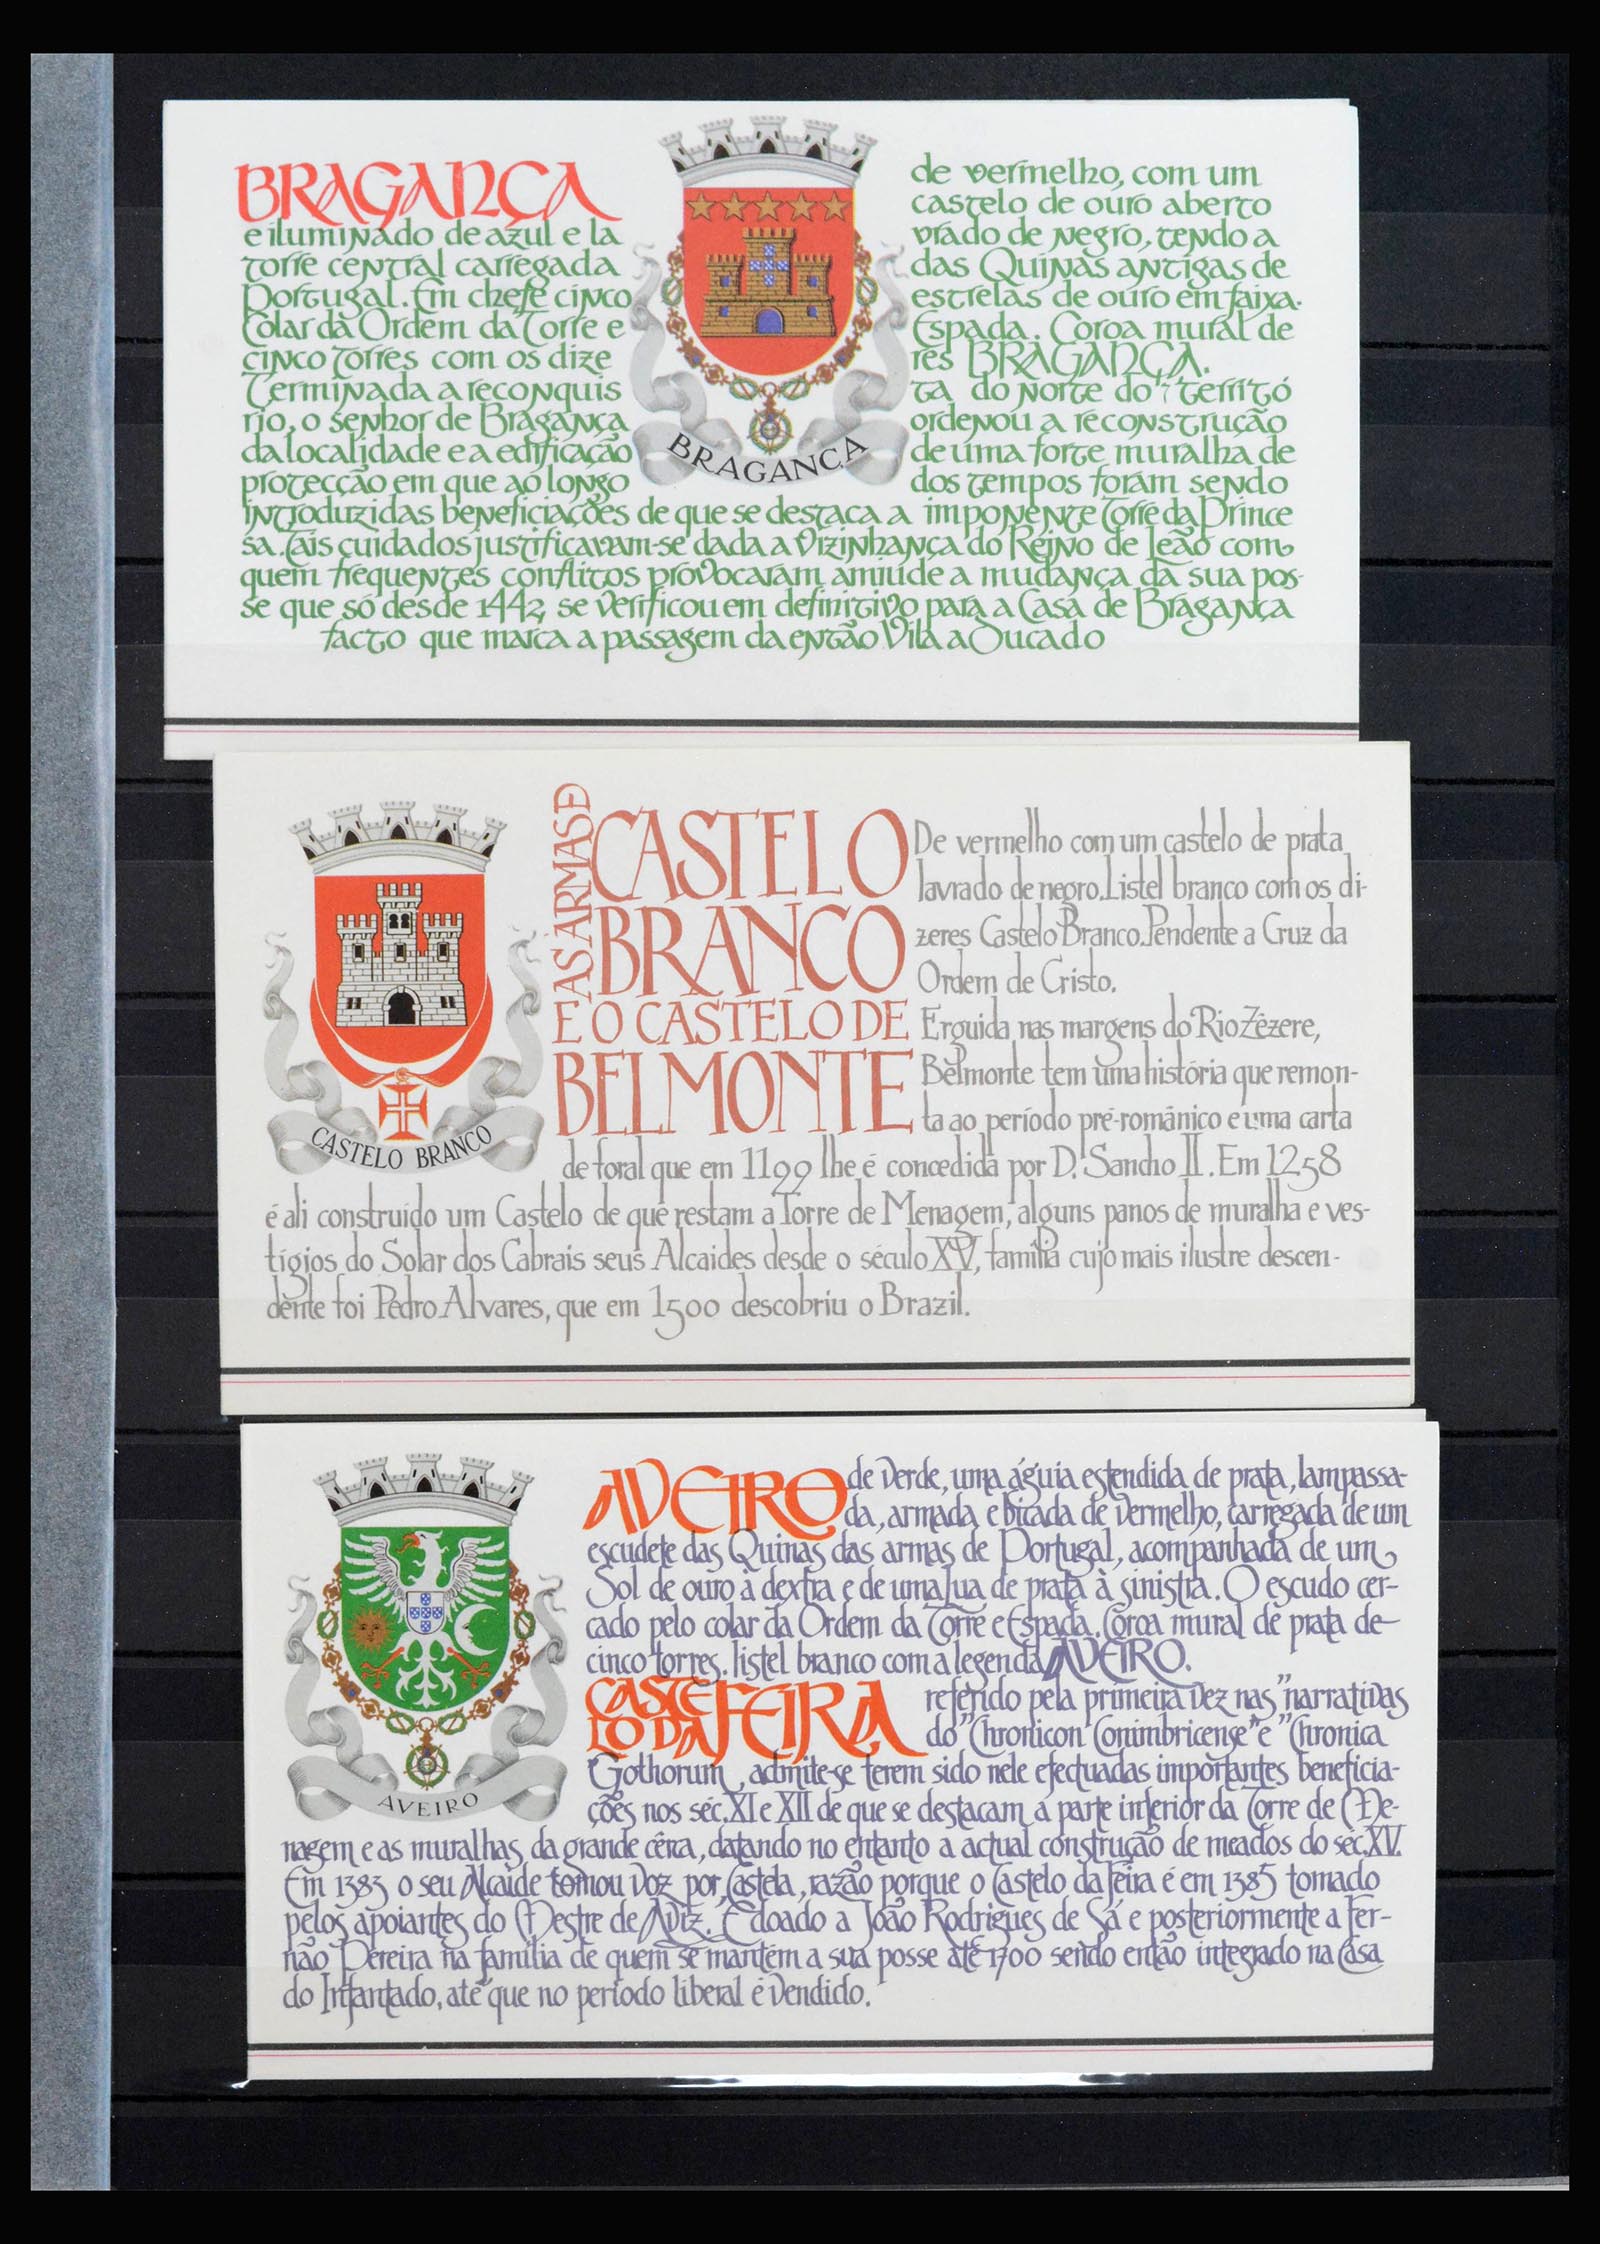 BRAGANÇA de vermelho, com um
castelo de ouro aberto
e iluminado de azul e la vrado de negro, tendo a
torre central carregada das Quinas antigas de
Portugal. Em chefe cinco estrelas de ouro em faixa.
Colar da Ordem da Torre e Espada. Coroa mural de
cinco torres com os dize res BRAGANÇA.
Terminada a reconquis ta do norte do territó
rio, o senhor de Bragança ordenou a reconstrução
da localidade e a edificação de uma forte muralha de
protecção em que ao longo dos tempos foram sendo
introduzidas beneficiações de que se destaca a imponente Torre da Prince
sa. Tais cuidados justificavam-se dada a vizinhança do Reino de Leão com
quem frequentes conflitos provocaram amiude a mudança da sua pos-
se que só desde 1442 se verificou em definitivo para a Casa de Bragança
facto que marca a passagem da então Vila a Ducado
BRAGANÇA
AS ARMAS DE
CASTELO
BRANCO
E O CASTELO DE
BELMONTE
De vermelho com um castelo de prata
lavrado de negro. Listel branco com os di-
zeres Castelo Branco. Pendente a Cruz da
Ordem de Cristo.
Erguida nas margens do Rio Zêzere,
Belmonte tem uma história que remon-
ta ao período pré-românico e uma carta
de foral que em 1199 lhe é concedida por D. Sancho II. Em 1258
é ali construído um Castelo de que restam a Torre de Menagem, alguns panos de muralha e ves-
tígios do Solar dos Cabrais seus Alcaides desde o século XV, família cujo mais ilustre descen-
dente foi Pedro Alvares, que em 1500 descobriu o Brazil.
CASTELO BRANCO
AVEIRO de verde, uma águia estendida de prata, lampassa-
da, armada e bicada de vermelho, carregada de um
escudete das Quinas das armas de Portugal, acompanhada de um
Sol de ouro à dextra e de uma Lua de prata à sinistra. O escudo cer-
cado pelo colar da Ordem da Torre e Espada. Coroa mural de prata de
cinco torres. listel branco com a legenda AVEIRO.
CASTE
LO DA FEIRA referido pela primeira vez nas "narrativas
do "Chronicon Conimbricense" e "Chronica
Gothorum, admite-se terem sido nele efectuadas importantes beneficia-
ções nos séc. XI e XII de que se destacam a parte inferior da Torre de Me-
nagem e as muralhas da grande cêrca, datando no entanto a actual construção de meados do séc. XV.
Em 1383 o seu Alcaide tomou voz por Castela, razão porque o Castelo da Feira é em 1385 tomado
pelos apoiantes do Mestre de Aviz. É doado a João Rodrigues de Sá e posteriormente a Fer-
não Pereira na família de quem se mantém a sua posse até 1700 sendo então integrado na Casa
do Infantado, até que no período liberal é vendido.
AVEIRO